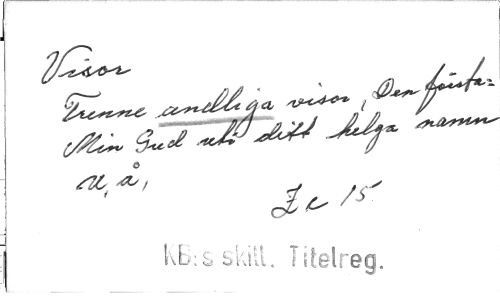 Visor
Trenne andliga visor, Den första=
Min Gud uti ditt helga namn
u, å,
Zc 15
KB:s skill. Titelreg.